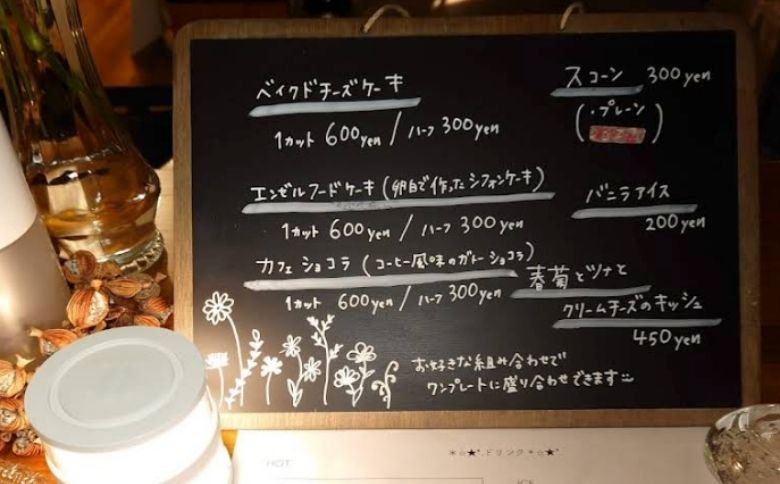 ベイクドチーズケーキ
1カット 600yen / ハーフ 300yen
エンゼルフードケーキ (卵白で作ったシフォンケーキ)
1カット 600yen / ハーフ 300yen
カフェ ショコラ (コーヒー風味のガトーショコラ)
1カット 600yen / ハーフ 300yen
スコーン 300yen
(・プレーン
)
バニラアイス
200yen
春菊とツナと
クリームチーズのキッシュ
450yen
お好きな組み合わせで
ワンプレートに盛り合わせできます
*☆★*.ドリンク*☆★*.
HOT
ICE